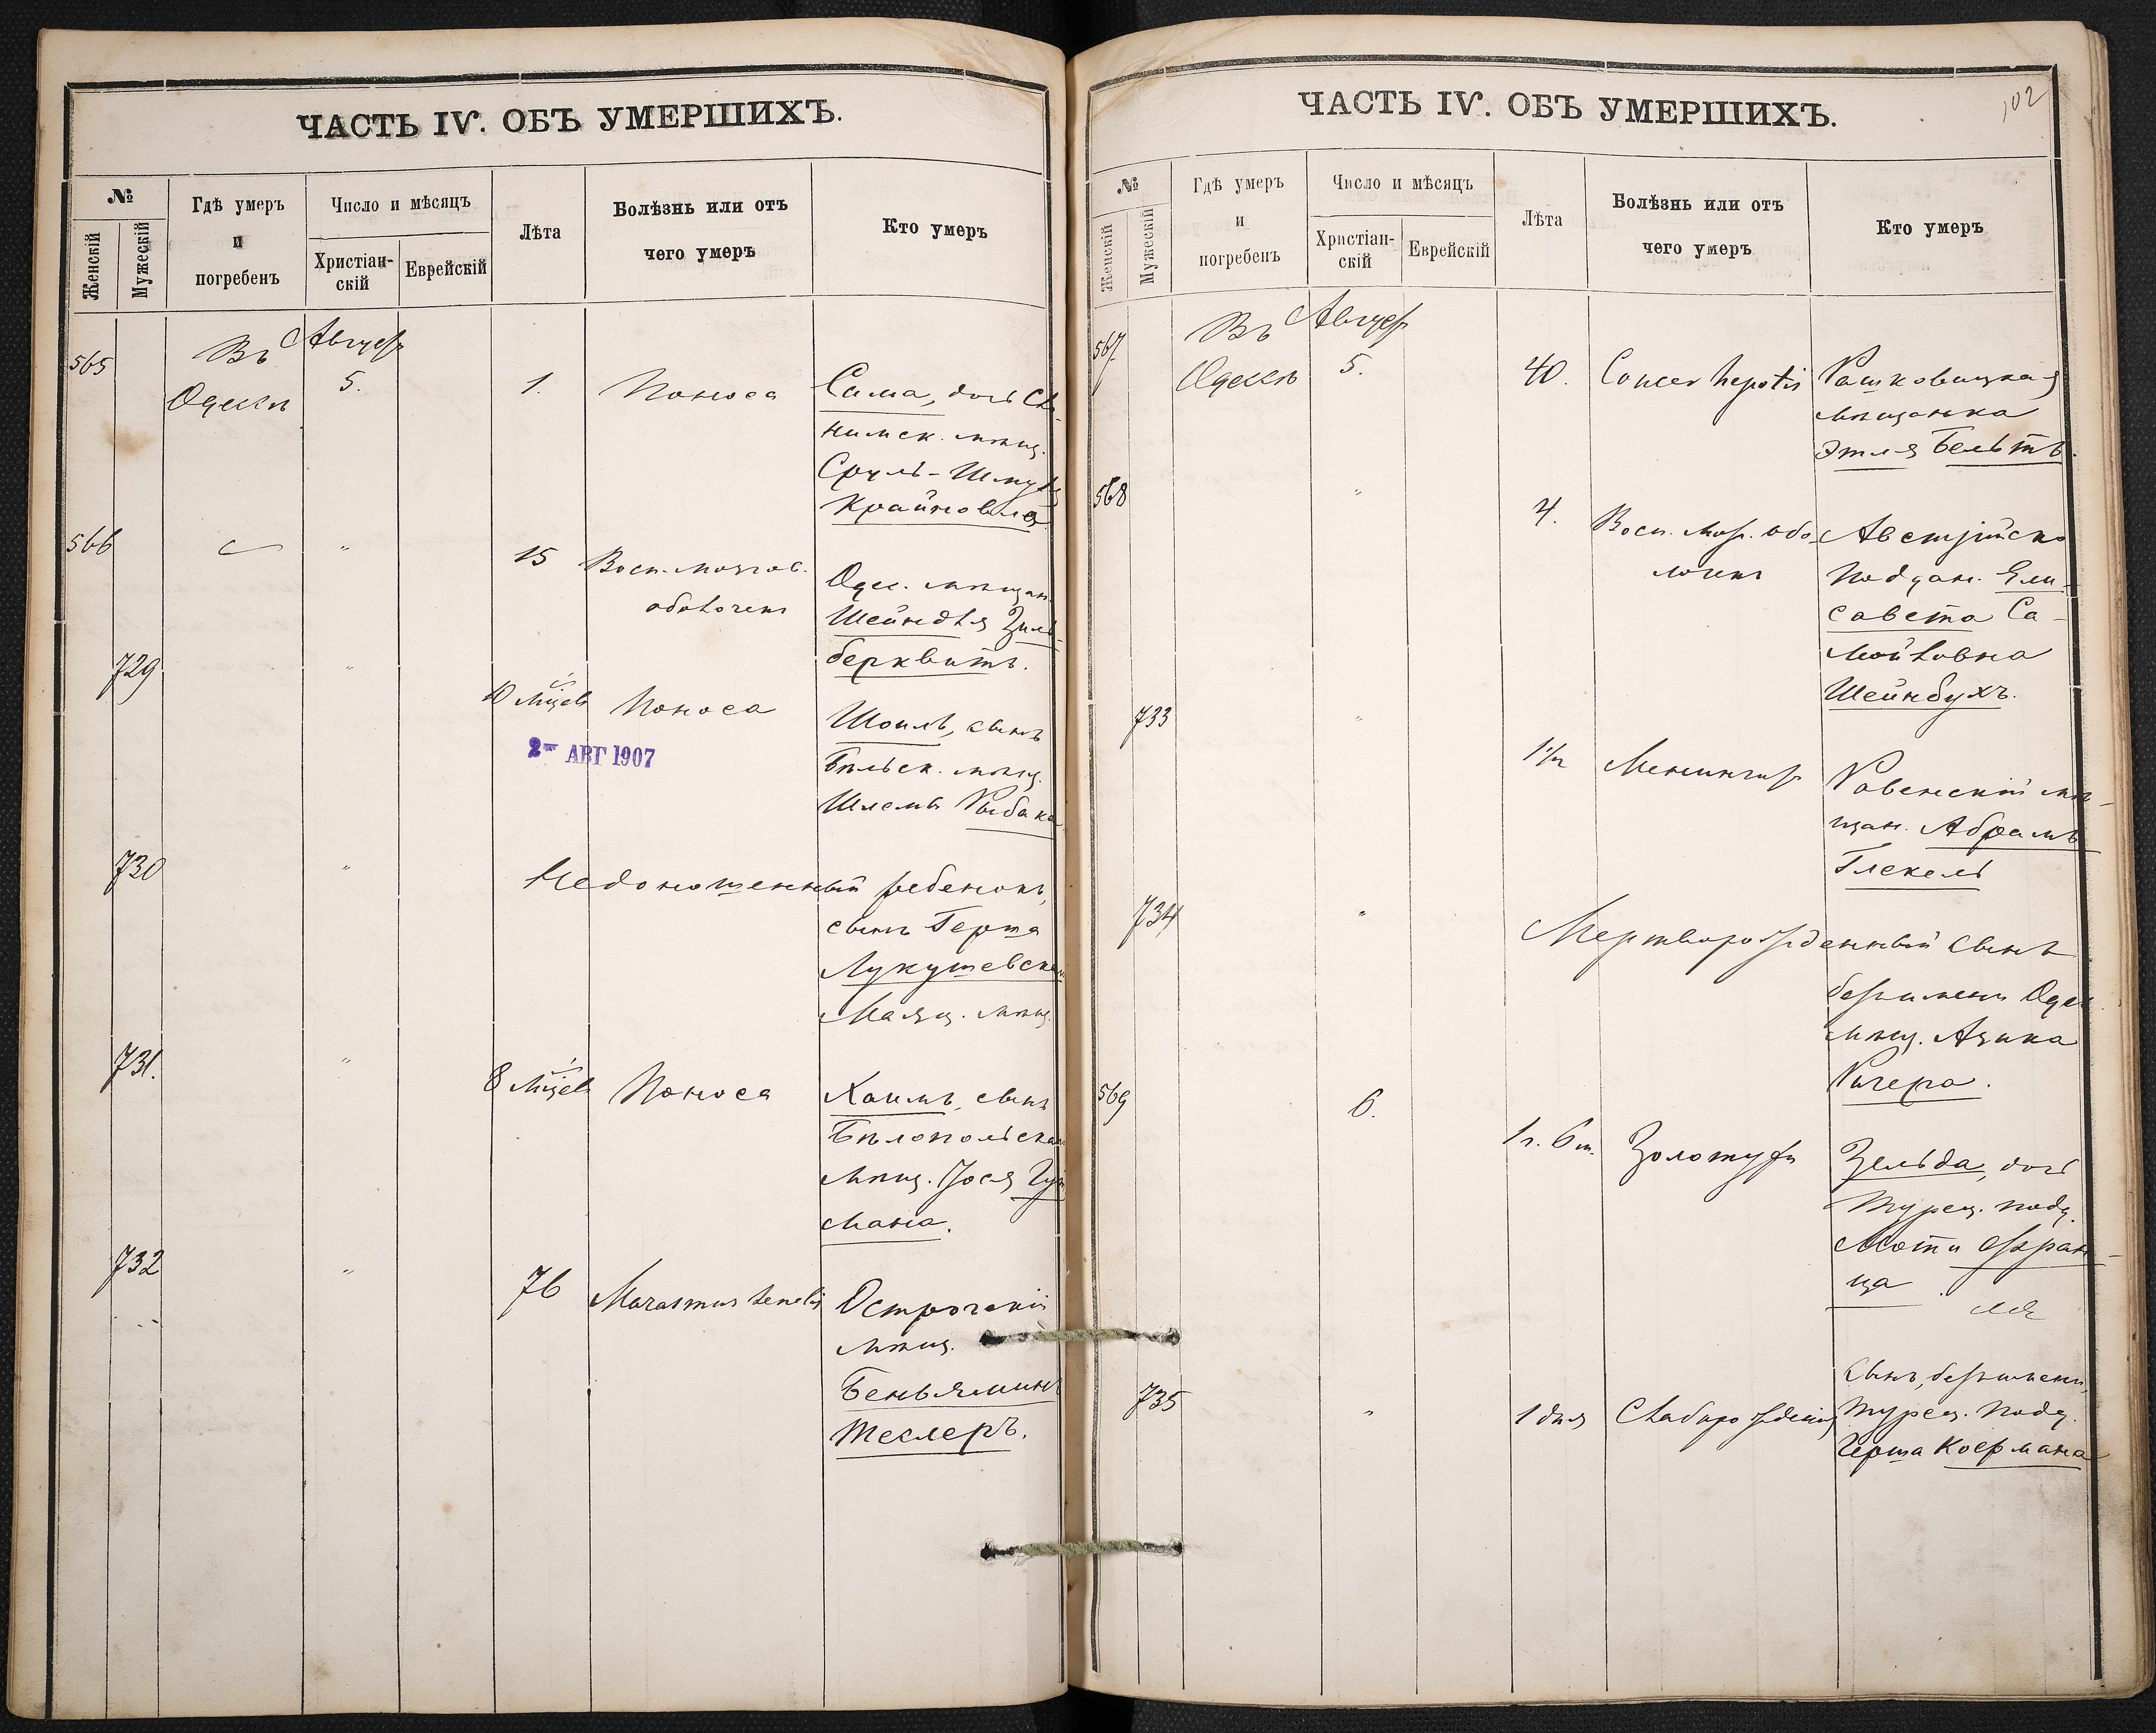 ЧАСТЬ IV. ОБЪ УМЕРШИХЪ.
№
Женскій
Мужескій
Гдѣ умеръ
и
погребенъ
Число и мѣсяцъ
Христіан-
скій
Еврейскій
Лѣта
Болѣзнь или отъ
чего умеръ
Кто умеръ
565
Въ
Одессѣ
Август
5.
1.
Поноса
Сима, дочь Сло-
нимск. мѣщ.
Сруль-Шмуля
Крайновича
566
"
15
Восп. мозгов.
оболочекъ
Одес. мѣщан.
Шейндля Зиль-
берквитъ.
729
"
10 Мѣсѣ
Поноса
Шоилъ, сынъ
Бѣльск. мѣщ.
Шлемы Рыбака
2 - АВГ 1907
730
"
Недоношенный ребенокъ,
сынъ Герша
Лукушевскаго
Маяц. мѣщ.
731.
"
8 Мѣсѣ
Поноса
Хаимъ, сынъ
Бѣлопольска
мѣщ. Іося Гу
мана.
732
"
76
Marasmus senelis
Острогскій
мѣщ.
Беньяминъ
Теслеръ.
ЧАСТЬ IV. ОБЪ УМЕРШИХЪ.
102
№
Женскій
Мужескій
Гдѣ умеръ
и
погребенъ
Число и мѣсяцъ
Христіан-
скій
Еврейскій
Лѣта
Болѣзнь или отъ
чего умеръ
Кто умеръ
567
Въ
Одессѣ
Август
5.
40.
Concer hepatis
Рашковицкая
мѣщанка
Этля Бельтъ.
568
"
4.
Восп. моз. обо-
лочекъ
Австрійско
поддан. Ели-
савета Са-
мойловна
Шейнбухъ.
733
"
1½
Менингит
Ровенскій мѣ-
щан. Абрамъ
Глекель
734
"
Мертворожденный сынъ
безъимени Одес
мѣщ. Азика
Ригера.
569
6.
1 г. 6 м.
Золотухи
Зельда, дочь
Турец. подд.
Моти Фран-
ца
735
"
1 дня
Слаборожденія
Сынъ, безъимени,
Турец. подд.
Герша Коермана